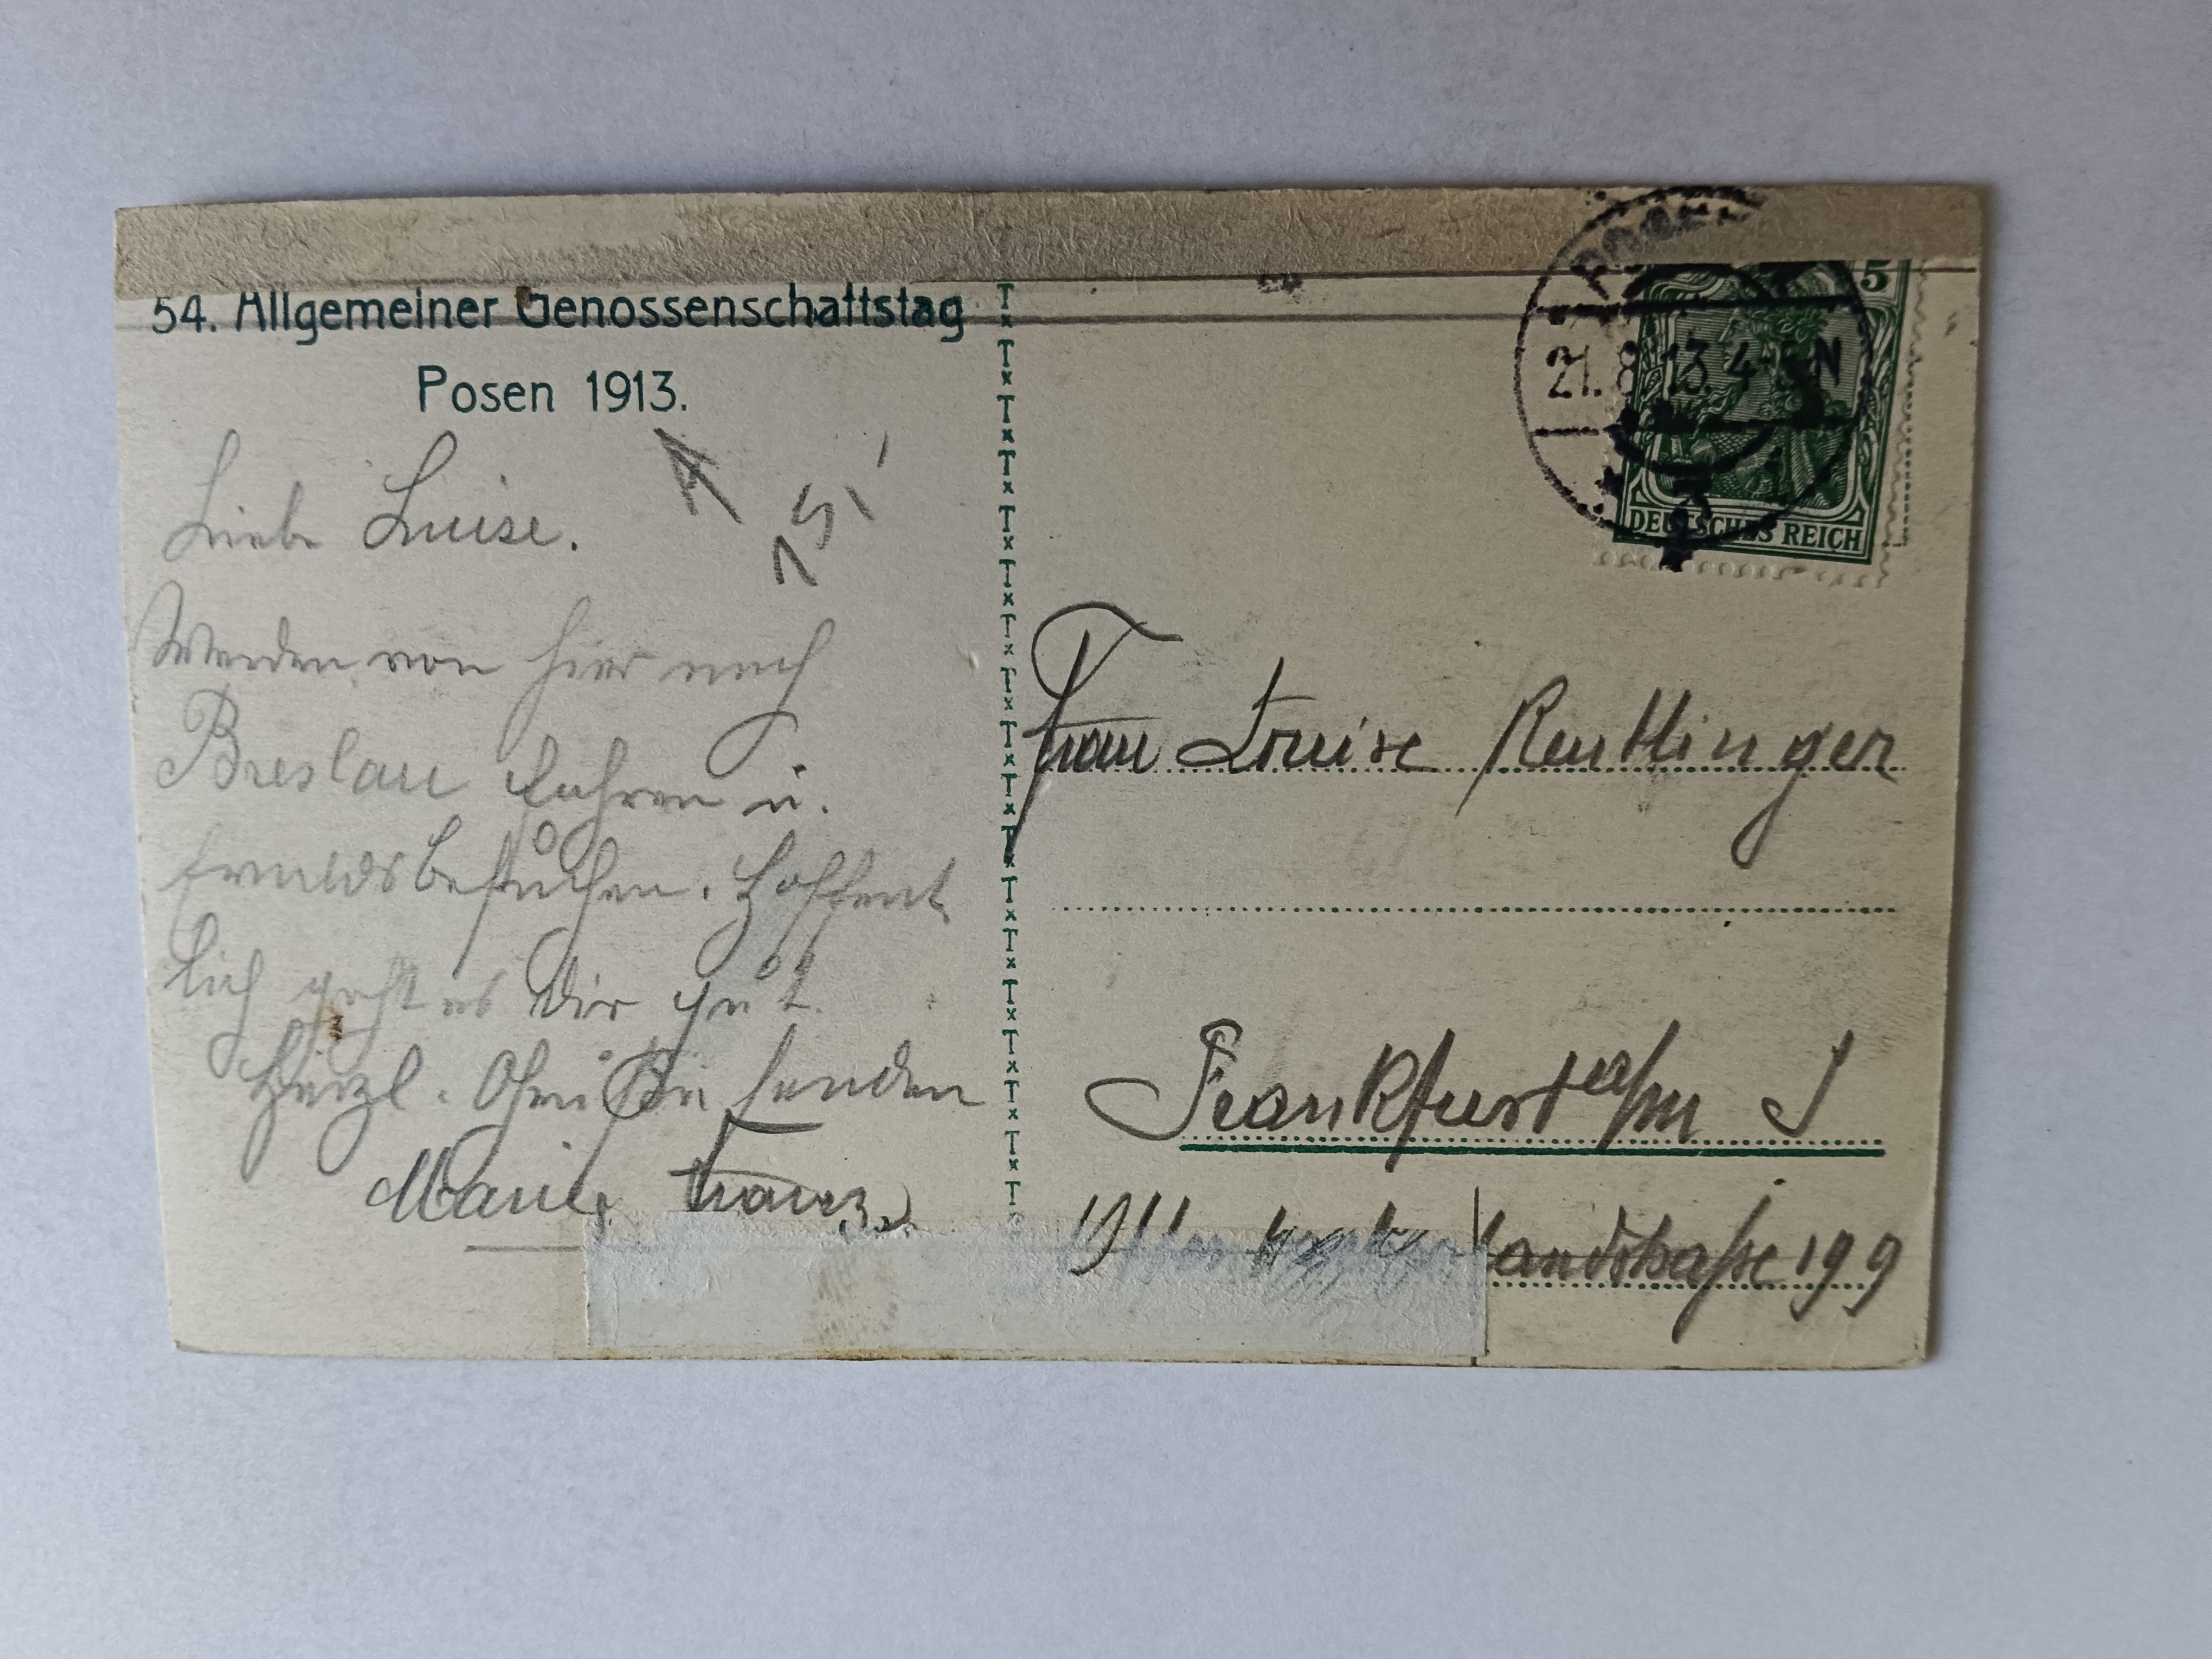 54. Allgemeiner Genossenschaftstag
Posen 1913.
Liebe Luise.
Werden von hier nach
Breslau fahren u.
Ewalds besuchen. Hoffent
lich geht es Dir gut.
Herzl. senden
Marie, Franz
POSEN
21.8.13. 4-5 N
5
DEUTSCHES REICH
Frau Luise Reutlinger
Frankfurt a/m
landstraße 199